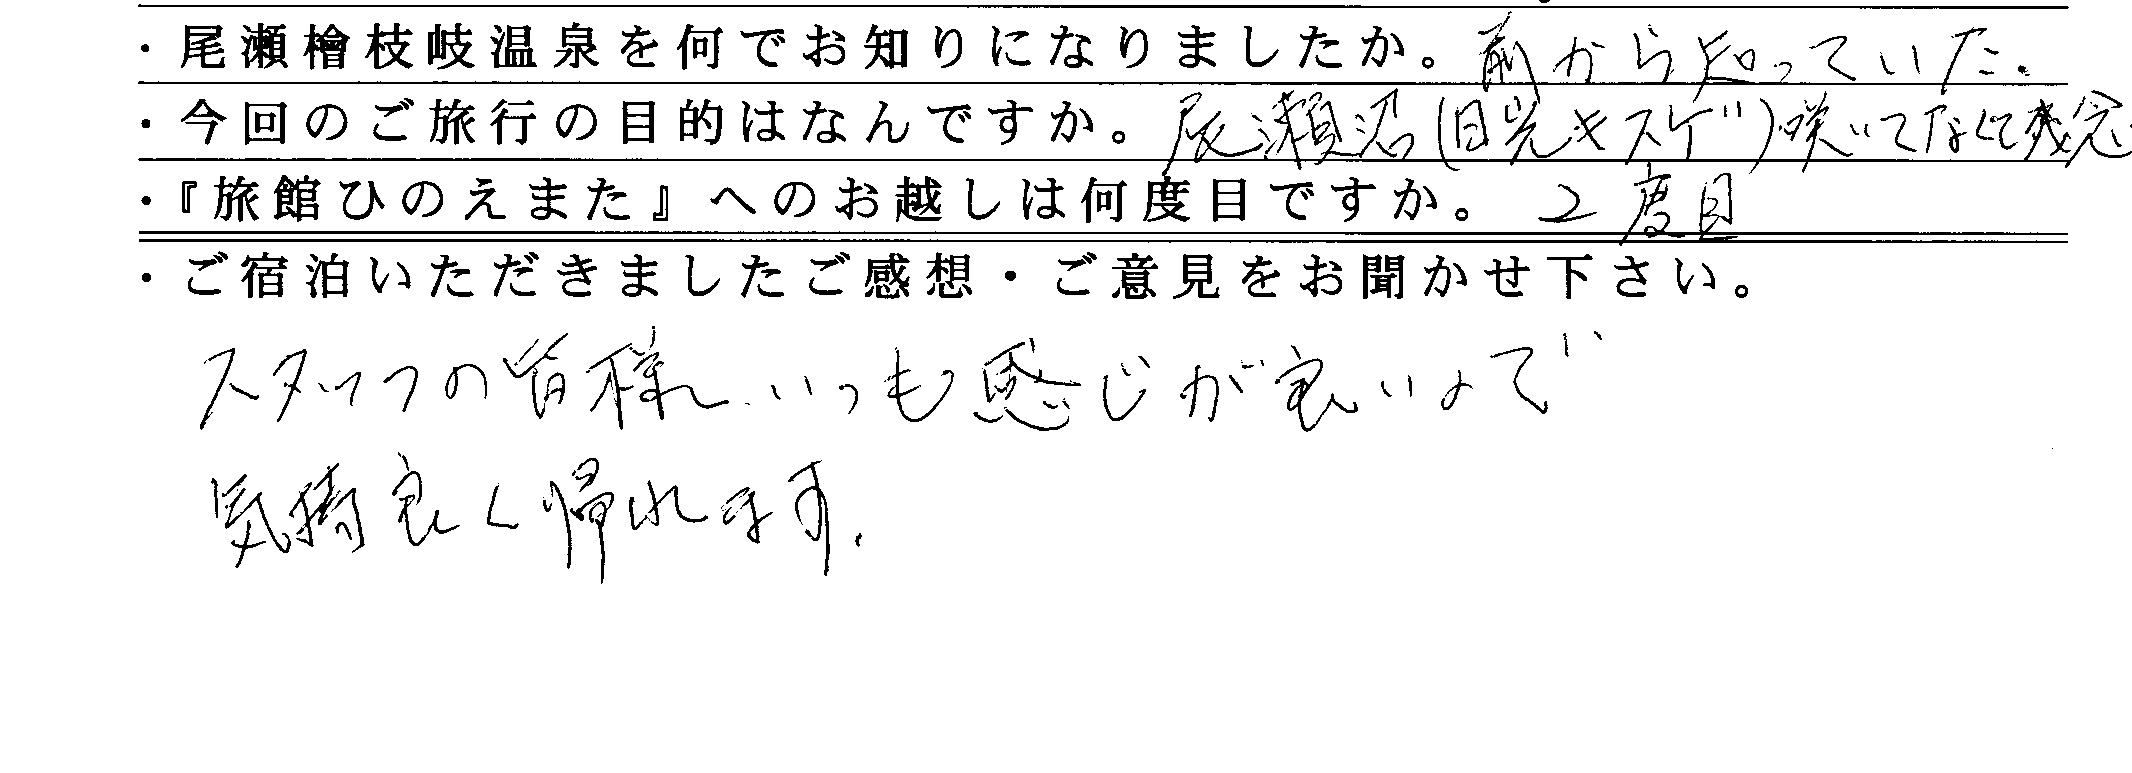 ・尾瀬檜枝岐温泉を何でお知りになりましたか。前から知っていた.
・今回のご旅行の目的はなんですか。尾瀬沼(日光キスゲ)咲いてなくて残念
・『旅館ひのえまた』へのお越しは何度目ですか。2度目
・ご宿泊いただきましたご感想・ご意見をお聞かせ下さい。
スタッフの皆様いつも感じが良いので
気持良く帰れます.